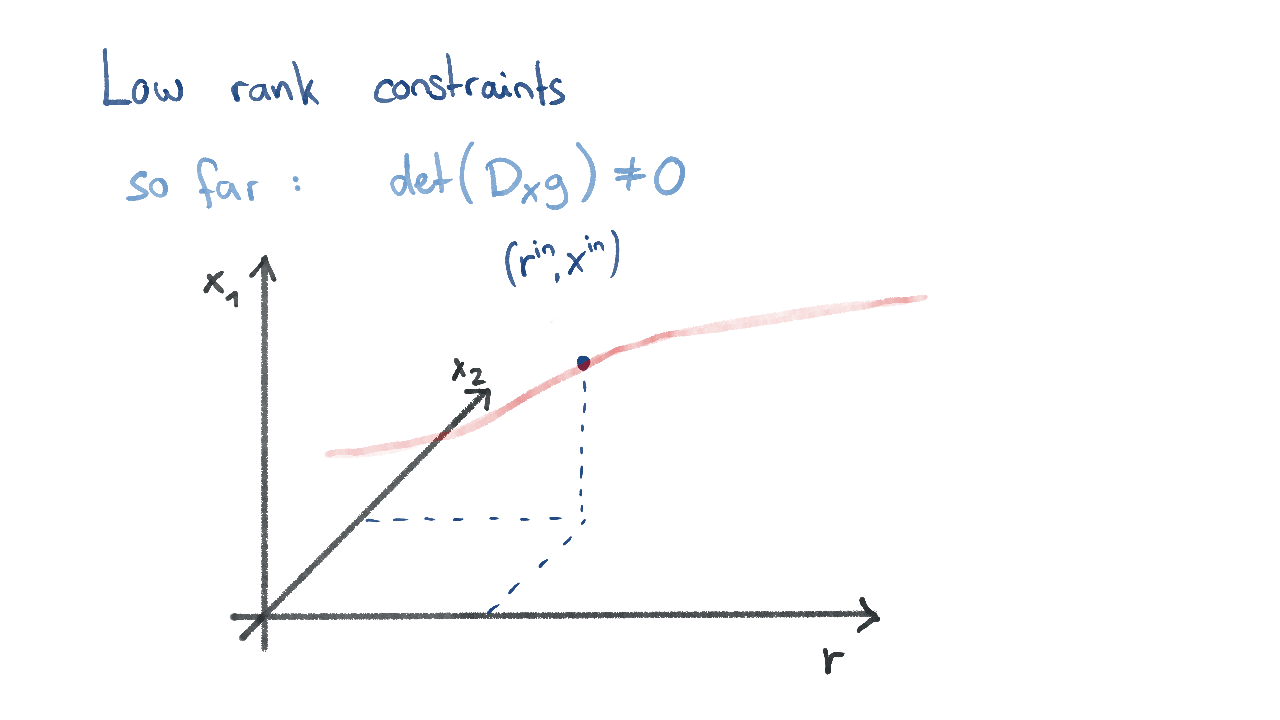 Low rank constraints
so far : det(Dₓg) ≠ 0
(rⁱⁿ, xⁱⁿ)
x₁
x₂
r